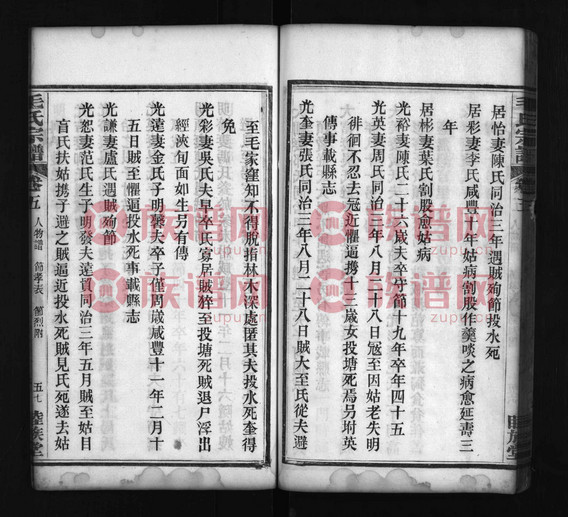 居怡妻陳氏同治三年遇賊殉節投水死
居彩妻李氏咸豐十年姑病割股作羹啖之病愈延壽三
年
居彬妻葉氏割股愈姑病
光裕妻陳氏二十六歲夫卒守節十九年卒年四十五
光英妻周氏同治元年八月二十八日寇至因姑老失明
徘徊不忍去寇近懼逼携十三歲女投塘死焉另坿英
傳事載縣志
光奎妻張氏同治三年八月二十八日賊大至氏從夫避
至毛家窪知不得脫指林木深處匿其夫投水死奎得
免
光彩妻吳氏夫早卒氏寡居賊猝至投塘死賊退尸浮出
經浹旬面如生另有傳
光達妻金氏子明馨夫卒子僅周歲咸豐十一年二月十
五日賊至懼逼投水死事載縣志
光謙妻盧氏遇賊殉節
光恕妻范氏生子明發夫遠賈同治三年五月賊至姑目
盲氏扶姑携子避之賊逼近投水死賊見氏死遂去姑
毛氏宗譜
卷五
人物譜
節孝表
節烈附
五七
睦族堂
族譜网
zupu.cn